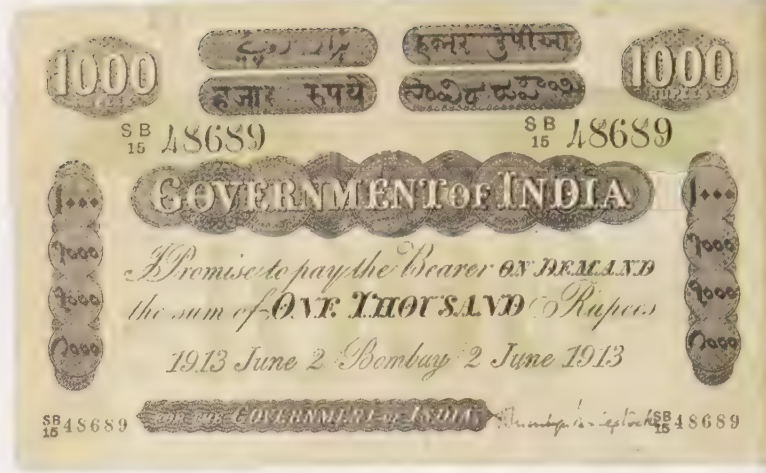 1000 ہزار روپیے હજાર રુપીઆ 1000
हजार रुपये
SB 15 48689 SB 15 48689
GOVERNMENT OF INDIA
I Promise to pay the Bearer ON DEMAND
the sum of ONE THOUSAND Rupees
1913 June 2 Bombay 2 June 1913
FOR THE GOVERNMENT OF INDIA
SB 15 48689 SB 15 48689